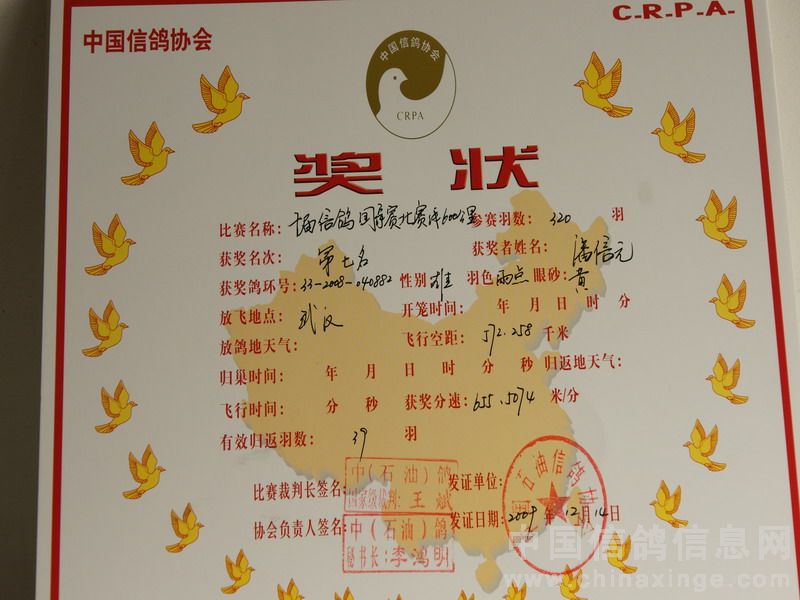 C-R-P-A-
中国信鸽协会
中国信鸽协会
CRPA
奖状
比赛名称: 信鸽国家赛北赛区600公里 参赛羽数: 320 羽
获奖名次: 第七名 获奖者姓名: 潘信元
获奖鸽环号: 33-2008-040882 性别 雄 羽色 雨点 眼砂: 黄
放飞地点: 武汉 开笼时间: 年 月 日 时 分
放鸽地天气: 飞行空距: 572.258 千米
归巢时间: 年 月 日 时 分 秒 归返地天气:
飞行时间: 分 秒 获奖分速: 655.5074 米/分
有效归返羽数: 39 羽
比赛裁判长签名: 中(石油)鸽 国家级裁判: 王斌 发证单位: 石油信鸽协
协会负责人签名: 中(石油)鸽 秘书长: 李鸿明 发证日期: 2009年12月14日
中国信鸽信息网
www.chinaxinge.com